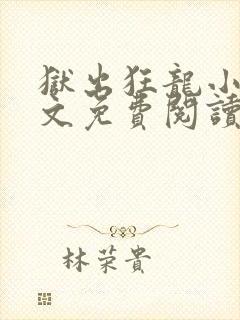 獄出狂龍小
文免費閱讀
林荣貴